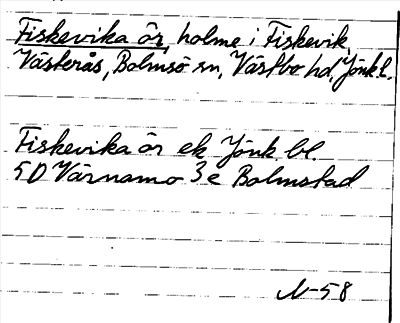 Fiskevika ör, holme i Fiskevik,
Västerås, Bolmsö sn, Västbo hd, Jönk. l.
Fiskevika ör ek Jönk bl.
5D Värnamo 3e Bolmstad
N-58